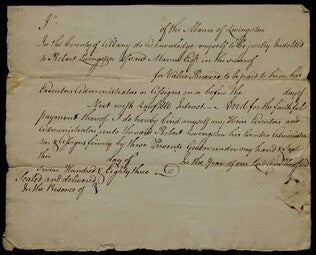 I
of the Manor of Livingston
In the County of Albany do acknowledge myself to be justly Indebted
to Robert Livingston of said Manor Esqr in the sum of
for Value Received to be paid to him his
Executors Administrators or Assigns on or before the day of
Next with Lawfull Interest — And for the faithful
payment thereof I do hereby bind myself my Heirs Executors and
Administrators unto the said Robert Livingston his Executors Administrators
& Assigns firmly by these Presents Given under my hand & Seal
this day of In the Year of our Lord One Thousand
Seven Hundred & Eighty three
Sealed and delivered
In the Presence of